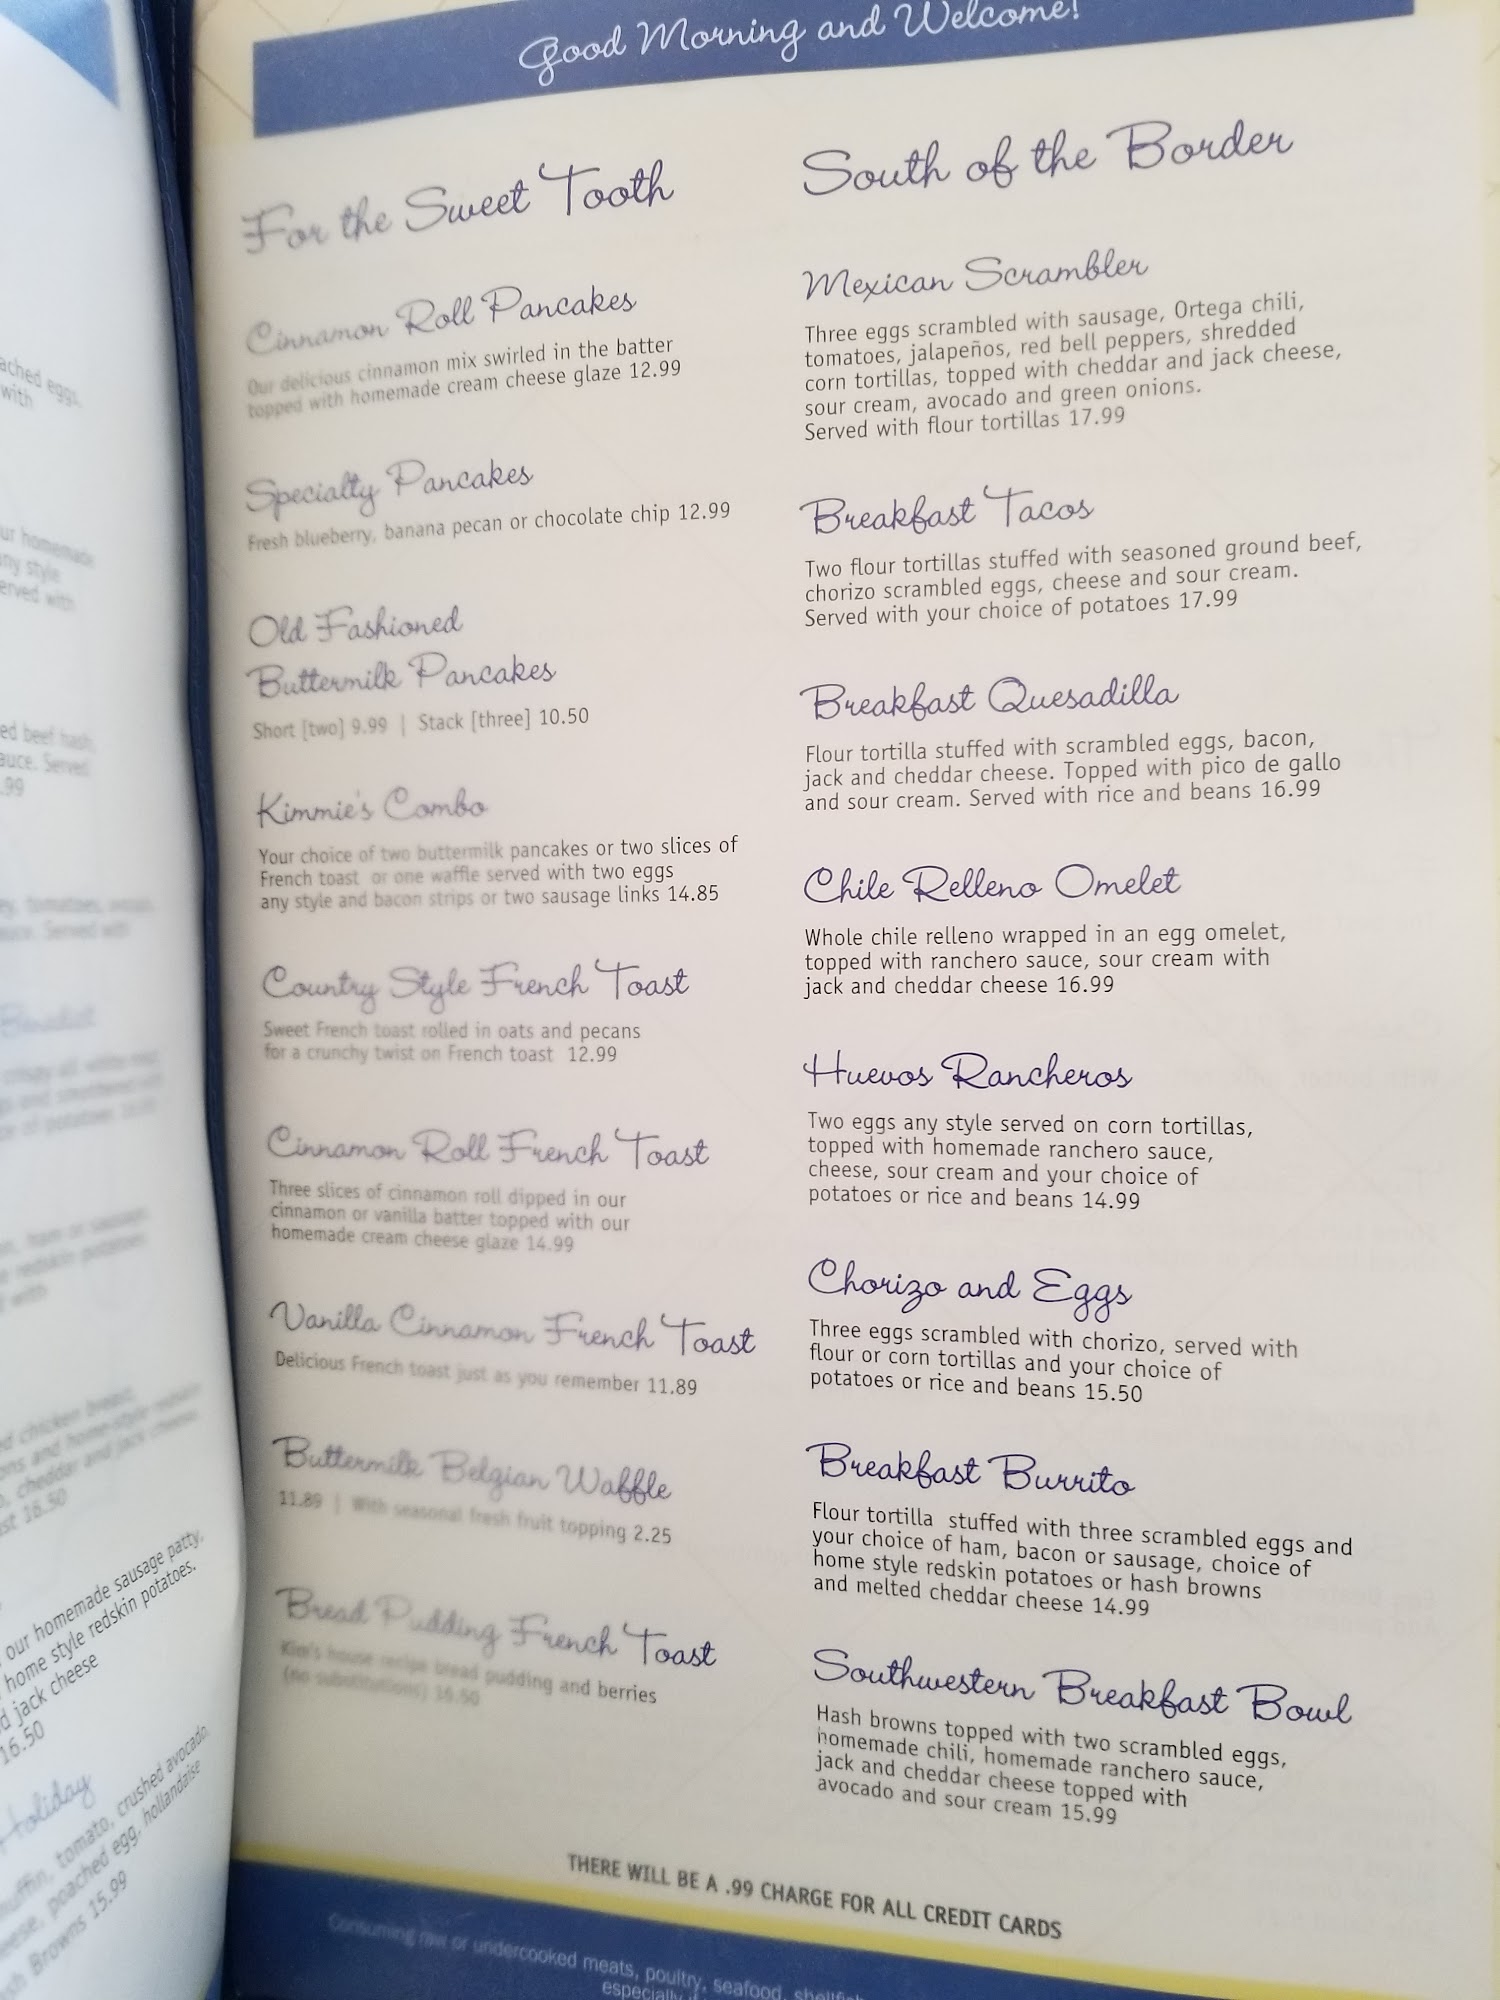 ached eggs,
with
ur homemade
ny style
erved with
ed beef hash,
auce. Served
.99
Benedict
d chicken breast,
ons and home-style redskin
, cheddar and jack cheese.
st 16.50
our homemade sausage patty,
home style redskin potatoes,
d jack cheese
16.50
Holiday
muffin, tomato, crushed avocado,
eese, poached egg, hollandaise
sh Browns 15.99
Good Morning and Welcome!
For the Sweet Tooth
Cinnamon Roll Pancakes
Our delicious cinnamon mix swirled in the batter
topped with homemade cream cheese glaze 12.99
Specialty Pancakes
Fresh blueberry, banana pecan or chocolate chip 12.99
Old Fashioned
Buttermilk Pancakes
Short [two] 9.99 | Stack [three] 10.50
Kimmie's Combo
Your choice of two buttermilk pancakes or two slices of
French toast or one waffle served with two eggs
any style and bacon strips or two sausage links 14.85
Country Style French Toast
Sweet French toast rolled in oats and pecans
for a crunchy twist on French toast 12.99
Cinnamon Roll French Toast
Three slices of cinnamon roll dipped in our
cinnamon or vanilla batter topped with our
homemade cream cheese glaze 14.99
Vanilla Cinnamon French Toast
Delicious French toast just as you remember 11.89
Buttermilk Belgian Waffle
11.89 | With seasonal fresh fruit topping 2.25
Bread Pudding French Toast
Kim's house recipe bread pudding and berries
(no substitutions) 16.50
South of the Border
Mexican Scrambler
Three eggs scrambled with sausage, Ortega chili,
tomatoes, jalapeños, red bell peppers, shredded
corn tortillas, topped with cheddar and jack cheese,
sour cream, avocado and green onions.
Served with flour tortillas 17.99
Breakfast Tacos
Two flour tortillas stuffed with seasoned ground beef,
chorizo scrambled eggs, cheese and sour cream.
Served with your choice of potatoes 17.99
Breakfast Quesadilla
Flour tortilla stuffed with scrambled eggs, bacon,
jack and cheddar cheese. Topped with pico de gallo
and sour cream. Served with rice and beans 16.99
Chile Relleno Omelet
Whole chile relleno wrapped in an egg omelet,
topped with ranchero sauce, sour cream with
jack and cheddar cheese 16.99
Huevos Rancheros
Two eggs any style served on corn tortillas,
topped with homemade ranchero sauce,
cheese, sour cream and your choice of
potatoes or rice and beans 14.99
Chorizo and Eggs
Three eggs scrambled with chorizo, served with
flour or corn tortillas and your choice of
potatoes or rice and beans 15.50
Breakfast Burrito
Flour tortilla stuffed with three scrambled eggs and
your choice of ham, bacon or sausage, choice of
home style redskin potatoes or hash browns
and melted cheddar cheese 14.99
Southwestern Breakfast Bowl
Hash browns topped with two scrambled eggs,
homemade chili, homemade ranchero sauce,
jack and cheddar cheese topped with
avocado and sour cream 15.99
THERE WILL BE A .99 CHARGE FOR ALL CREDIT CARDS
Consuming raw or undercooked meats, poultry, seafood, shellfish
especially